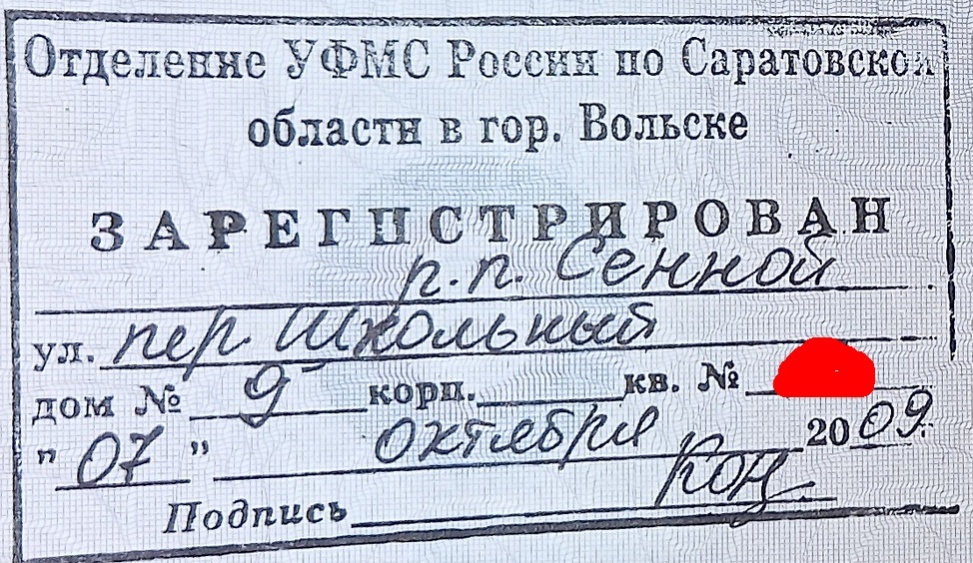 Отделение УФМС России по Саратовской
области в гор. Вольске
ЗАРЕГИСТРИРОВАН
р.п. Сенной
ул. пер. Школьный
дом № 9 корп. кв. №
"07" октября 2009
Подпись